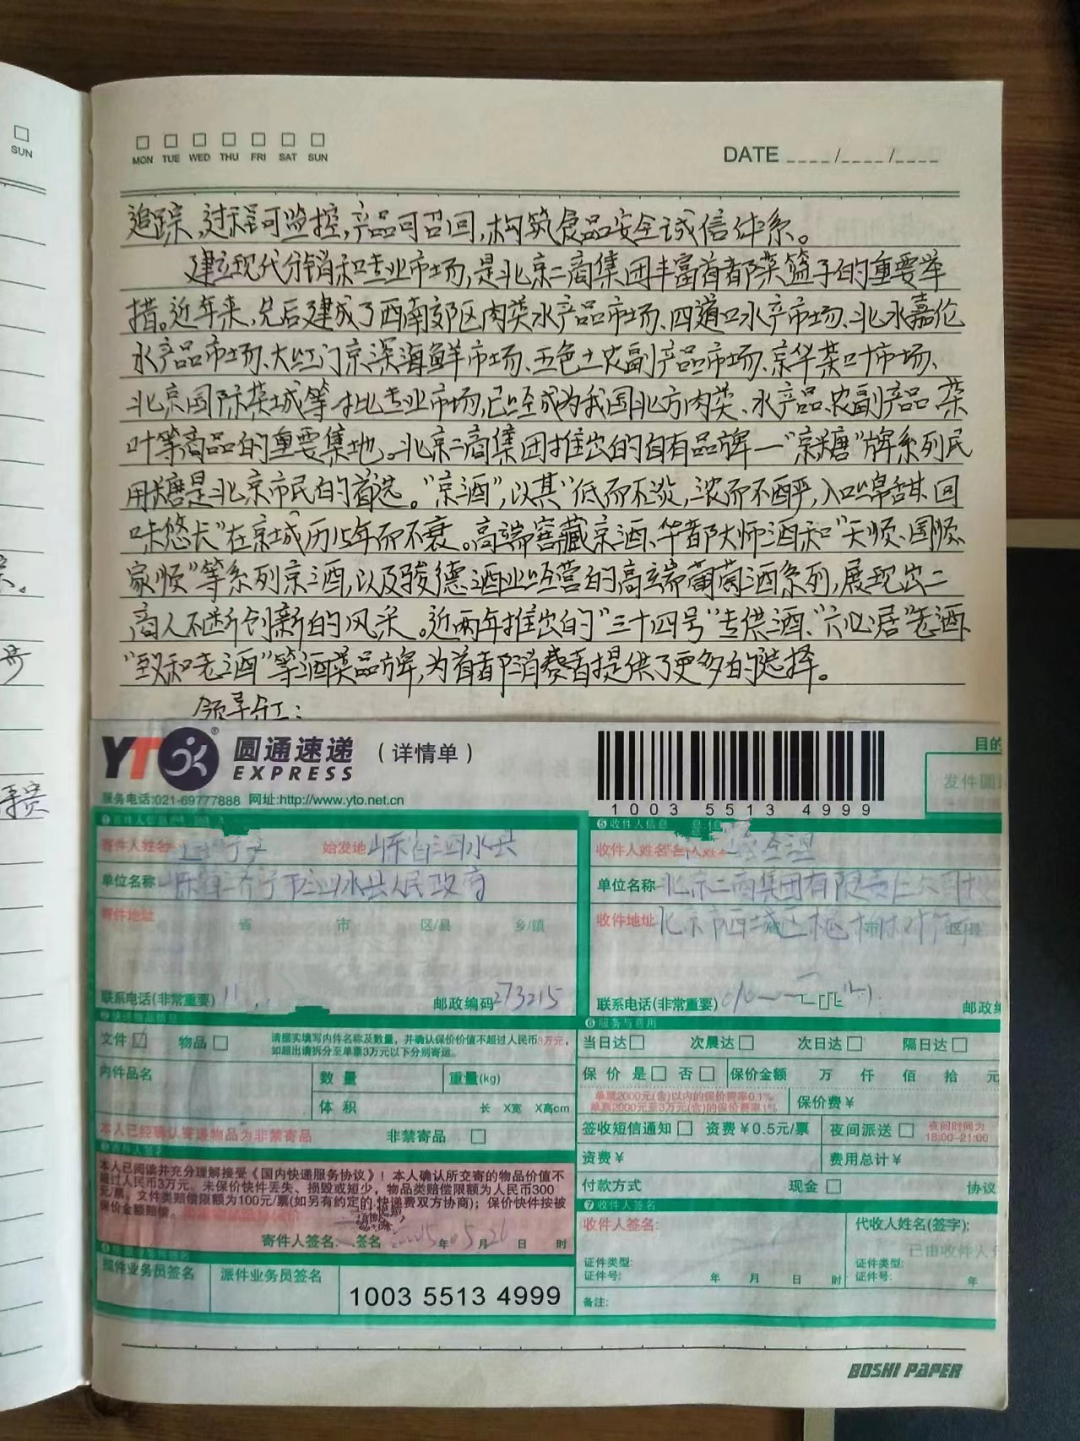 SUN
MON TUE WED THU FRI SAT SUN
DATE ____/____/____
追踪,过程可监控,产品可召回,构筑食品安全诚信体系。
建立现代分销和专业市场,是北京二商集团丰富首都菜篮子的重要举
措。近年来,先后建成了西南郊区肉类水产品市场、四道口水产市场、北水嘉伦
水产品市场、大红门京深海鲜市场、五色土农副产品市场、京华茶叶市场、
北京国际茶城等一批专业市场,已经成为我国北方肉类、水产品、农副产品、茶
叶等商品的重要集地。北京二商集团推出的自有品牌一"京糖"牌系列民
用糖是北京市民的首选。"京酒",以其"低而不淡,浓而不酽,入口绵甜、回
味悠长"在京城历15年而不衰。高端窖藏京酒、华都大师酒和"天顺、国顺、
家顺"等系列京酒,以及骏德酒业经营的高端葡萄酒系列,展现出二
商人不断创新的风采。近两年推出的"三十四号"专供酒、"六必居"老酒、
"致和老酒"等酒类品牌,为首都消费者提供了更多的选择。
YTO 圆通速递 (详情单)
EXPRESS
服务电话:021-69777888 网址:http://www.yto.net.cn
1003 5513 4999
目的
寄件人姓名 始发地 山东省泗水县
收件人信息
收件人姓名
单位名称 山东省济宁市泗水县人民政府
单位名称 北京二商集团有限责任公司
寄件地址 省 市 区/县 乡/镇
收件地址 北京市西城区槐柏树街
联系电话(非常重要) 邮政编码 273215
联系电话(非常重要) 邮政编
服务与费用
文件 物品 请据实填写内件名称及数量,并确认保价价值不超过人民币3万元,
如超出请拆分至单票3万元以下分别寄运。
当日达 次晨达 次日达 隔日达
内件品名 数量 重量(kg)
保价 是 否 保价金额 万 仟 佰 拾 元
体积 长 X宽 X高cm
单票2000元(含)以内的保价费率0.1%
单票2000元至3万元(含)的保价费率1%
保价费¥
本人已经确认寄递物品为非禁寄品 非禁寄品
签收短信通知 资费¥0.5元/票 夜间派送 夜间时间为
18:00-21:00
资费¥ 费用总计¥
本人已阅读并充分理解接受《国内快递服务协议》!本人确认所交寄的物品价值不
超过人民币3万元。未保价快件丢失、损毁或短少,物品类赔偿限额为人民币300
元/票,文件类赔偿限额为100元/票(如另有约定的快递费双方协商);保价快件按被
保价金额赔偿。
付款方式 现金 协议
收件人签名
寄件人签名: 签名 年 月 日 时
收件人签名: 代收人姓名(签字):
证件类型: 证件类型:
证件号: 年 月 日 时 证件号: 年
派件业务员签名
1003 5513 4999
备注:
BOSHI PAPER